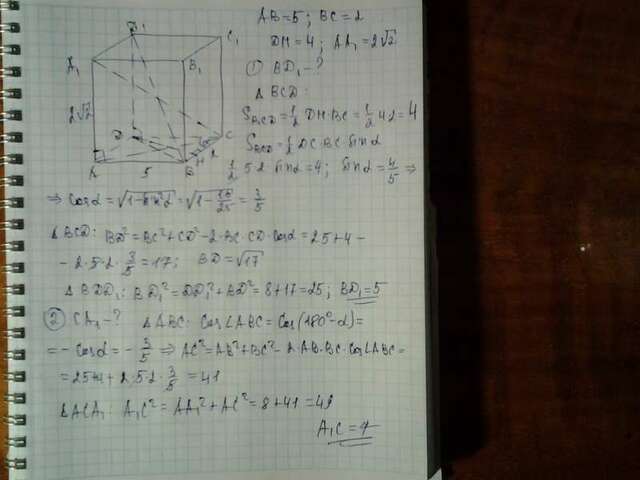 AB=5; BC=2
DH=4; AA₁=2√2
① BD₁-?
Δ BCD:
S_BCD=½ DH·BC=½ 4·2=4
S_BCD=½ DC·BC·sinα
½ 5·2 sinα=4; sinα=4/5 ⇒
⇒ cosα=√(1-sin²α)=√(1-16/25)=3/5
Δ BCD: BD²=BC²+CD²-2·BC·CD·cosα=25+4-
-2·5·2·3/5=17; BD=√17
Δ BDD₁: BD₁²=DD₁²+BD²=8+17=25; BD₁=5
② CA₁-? ΔABC: Cos∠ABC=Cos(180°-α)=
=-cosα=-3/5 ⇒ AC²=AB²+BC²-2·AB·BC·Cos∠ABC=
=25+4+2·5·2·3/5=41
ΔACA₁: A₁C²=AA₁²+AC²=8+41=49
A₁C=7
D₁
C₁
A₁
B₁
2√2
D
C
2
H
A
5
B